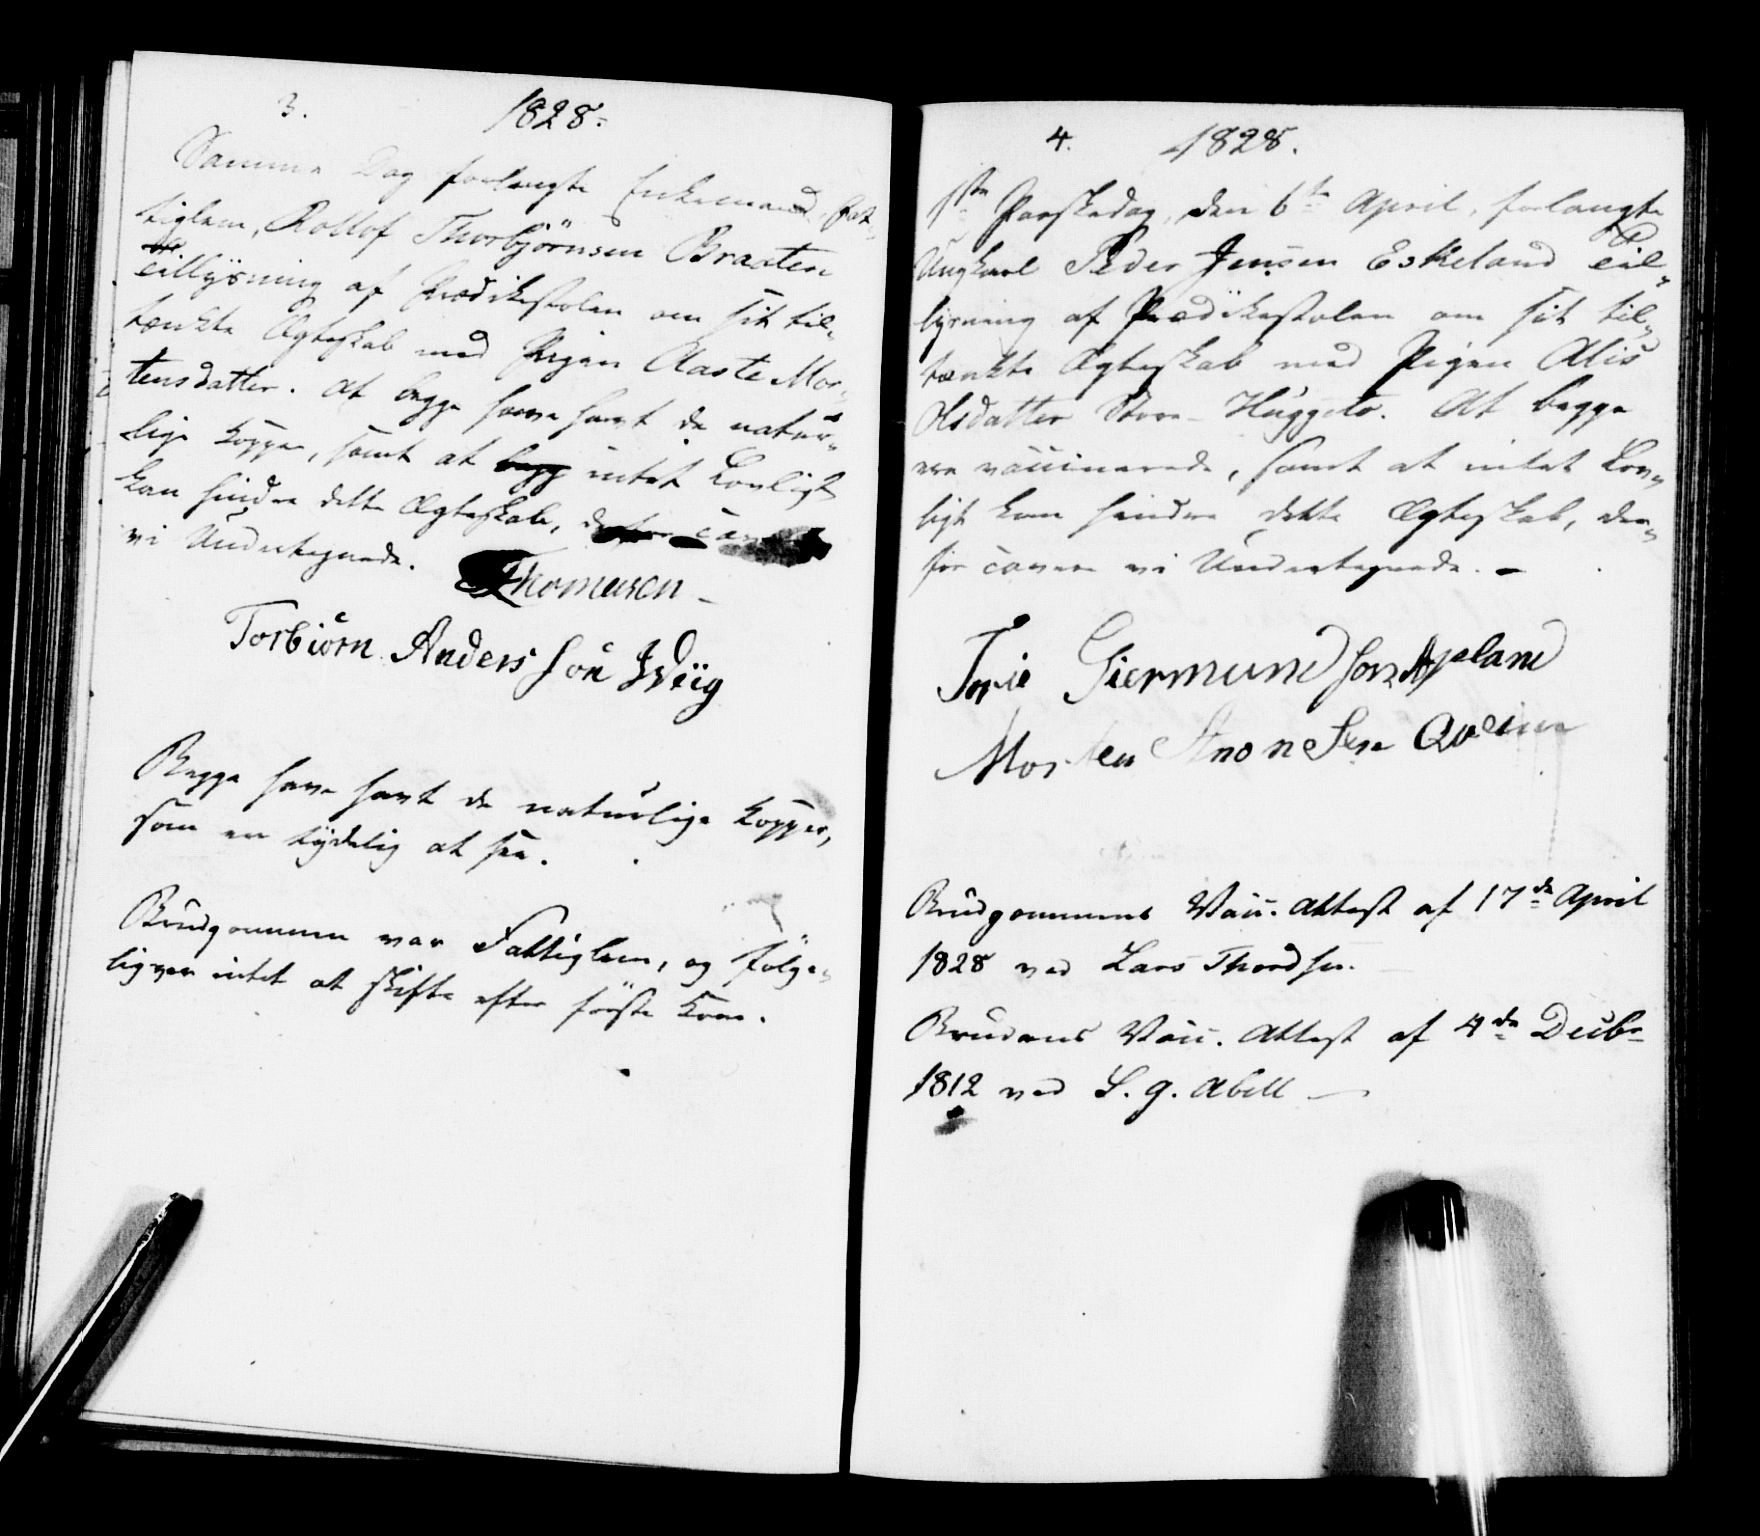 3.
1828.
Samme Dag forlangte Enkemand, Fat-
tiglem, Rollof Thorbjörnsen Braaten
Tillysning af Prædikestolen om sit til-
tænkte Ægteskab med Pigen Aaste Mor-
tensdatter. At begge have havt de natur-
lige Kopper, samt at begge intet Lovligt
kan hindre dette Ægteskab,
vi Undertegnede.
Thomesen
Torbiørn Anders søn
Begge have havt de naturlige Kopper,
som er tydelig at see.
Brudgommen var Fattiglem, og følge-
ligen intet at skifte efter første Kone.
4.
1828.
1ste Paaskedag, den 6te April, forlangte
Ungkarl Peder Jensen Eskeland Til-
lysning af Prædikestolen om sit til-
tænkte Ægteskab med Pigen Alis
Olsdatter Store-Huggeto. At begge
ere vaccinerede, samt at intet Lov-
ligt kan hindre dette Ægteskab, der-
for cavere vi Undertegnede. -
Giermund søn Apeland
Morten
Brudgommens Vacc. Attest af 17de April
1828 ved Lars Thordsen.
Brudens Vacc. Attest af 4de Decbr
1812 ved S. G. Abell